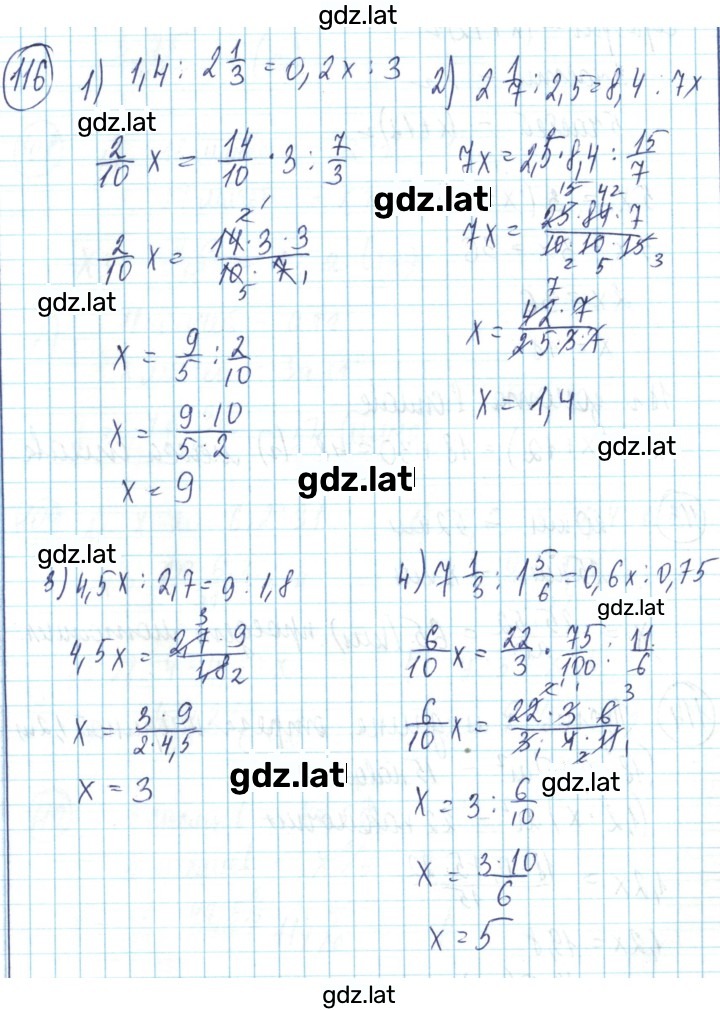 gdz.lat
116
1) 1,4 : 2 1/3 = 0,2x : 3
gdz.lat
2/10 x = 14/10 · 3 : 7/3
2/10 x = 14 · 3 · 3 / 10 · 7
2 1
5 1
gdz.lat
x = 9/5 : 2/10
x = 9 · 10 / 5 · 2
x = 9
2) 2 1/7 : 2,5 = 8,4 : 7x
7x = 2,5 · 8,4 : 15/7
gdz.lat
7x = 25 · 84 · 7 / 10 · 10 · 15
15 42
2 5 3
x = 42 · 7 / 2 · 5 · 3 · 7
7
x = 1,4
gdz.lat
gdz.lat
gdz.lat
3) 4,5x : 2,7 = 9 : 1,8
4,5x = 2,7 · 9 / 1,8
3
2
x = 3 · 9 / 2 · 4,5
x = 3
gdz.lat
4) 7 1/3 : 1 5/6 = 0,6x : 0,75
gdz.lat
6/10 x = 22/3 · 75/100 : 11/6
6/10 x = 22 · 3 · 6 / 3 · 4 · 11
2 1 3
1 2 1
gdz.lat
x = 3 : 6/10
x = 3 · 10 / 6
x = 5
gdz.lat